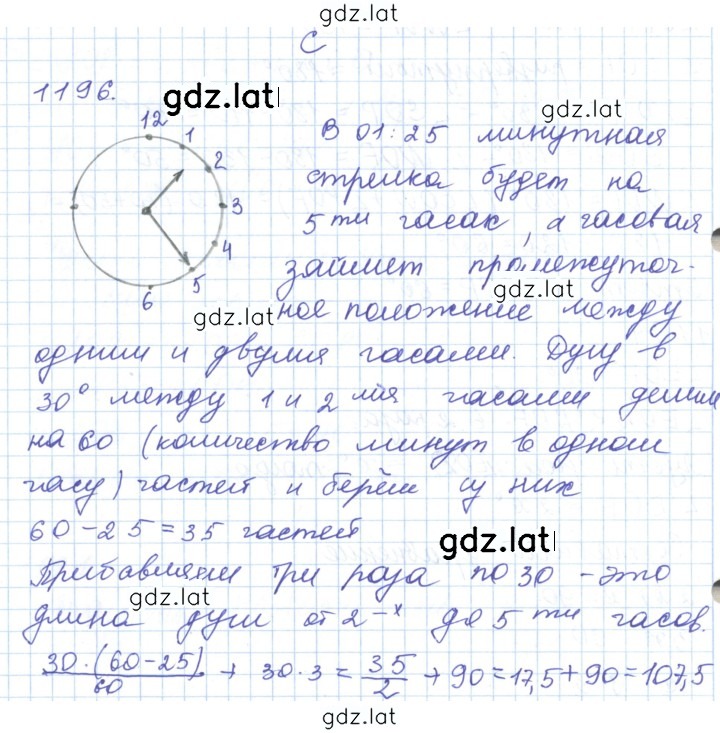 gdz.lat
С
1196.
gdz.lat
gdz.lat
12
1
2
3
4
5
6
В 01:25 минутная
стрелка будет на
5ти часах, а часовая
займет промежуточ-
gdz.lat
gdz.lat
ное положение между
одним и двумя часами. Дугу в
30° между 1 и 2 мя часами делим
на 60 (количество минут в одном
часу) частей и берём из них
60-25=35 частей
gdz.lat
Прибавляем три раза по 30 - это
gdz.lat
длина дуги от 2-х до 5 ти часов.
30·(60-25)/60 + 30·3 = 35/2 + 90 = 17,5 + 90 = 107,5
gdz.lat